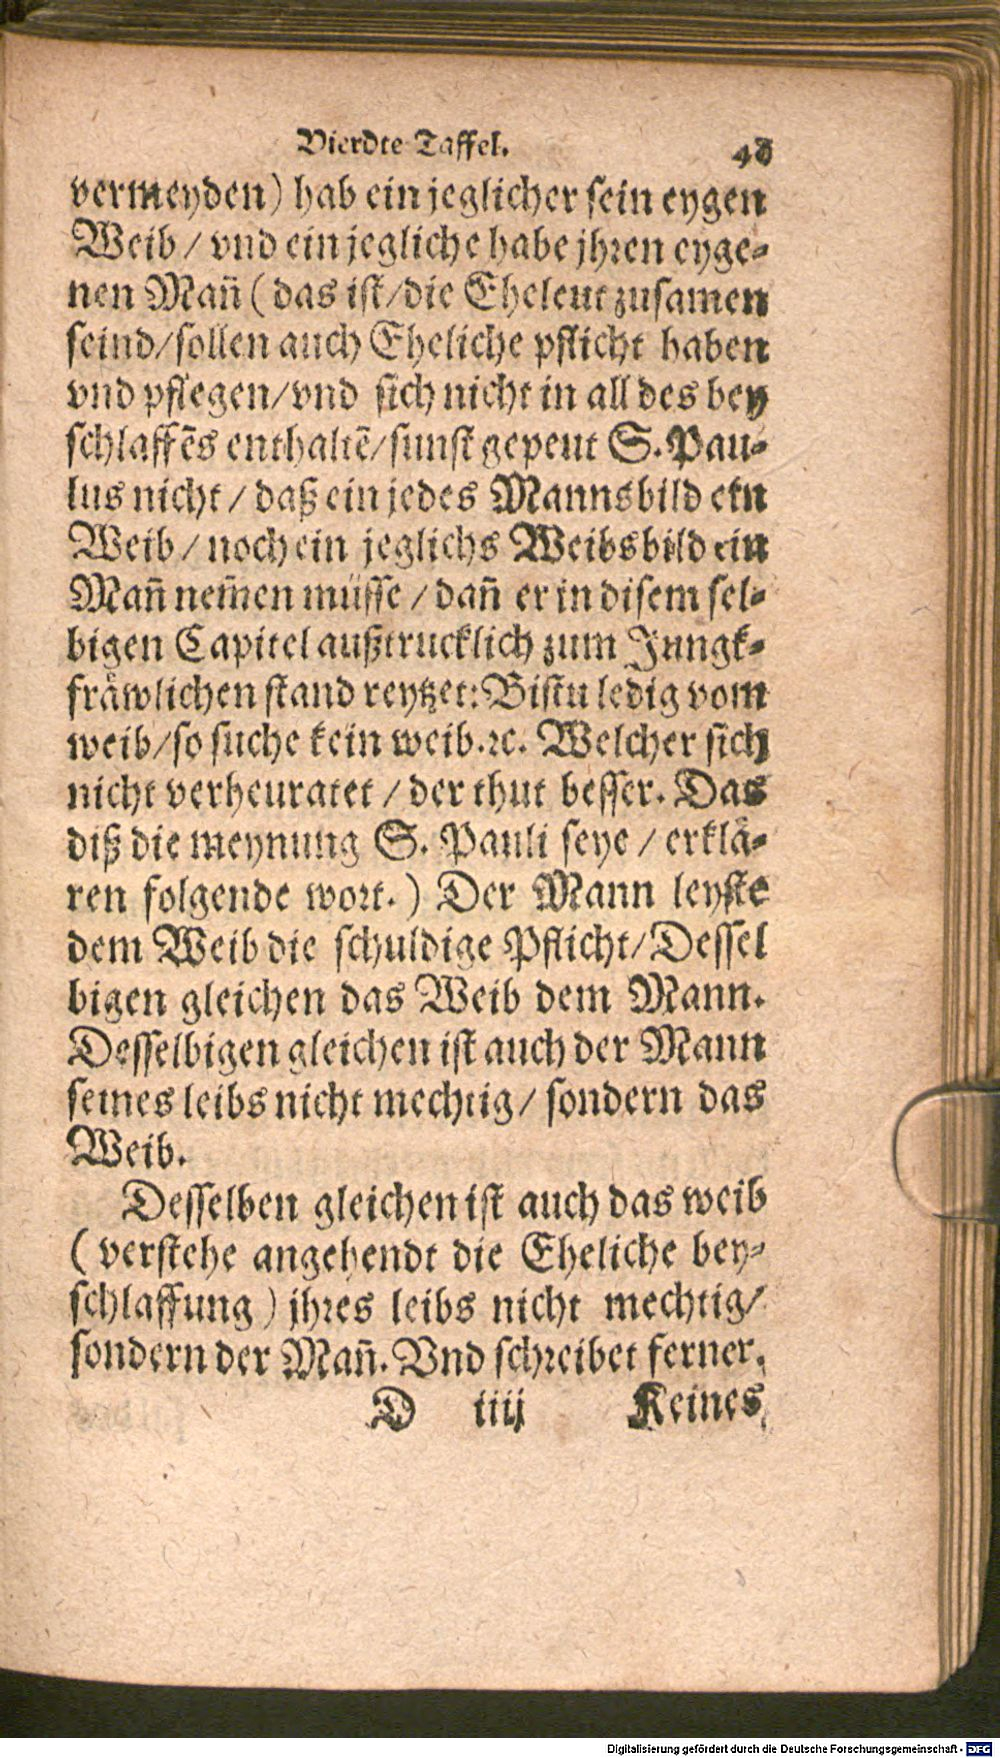 Vierdte Taffel. 40
vermeyden) hab ein jeglicher sein eygen
Weib / vnd ein jegliche habe jhren eyge-
nen Mañ ( das ist/die Eheleut zusamen
seind/sollen auch Eheliche pflicht haben
vnd pflegen/vnd sich nicht in all des bey
schlaffẽs enthaltẽ/sunst gepeut S. Pau-
lus nicht / daß ein jedes Mannsbild ein
Weib / noch ein jeglichs Weibsbild ein
Mañ nem̃en müsse / dañ er in disem sel-
bigen Capitel außtrucklich zum Jungk-
fräwlichen stand reytzet: Bistu ledig vom
weib/so suche kein weib.ꝛc. Welcher sich
nicht verheuratet / der thut besser. Das
diß die meynung S. Pauli seye / erklä-
ren folgende wort.) Der Mann leyste
dem Weib die schuldige Pflicht/Dessel
bigen gleichen das Weib dem Mann.
Desselbigen gleichen ist auch der Mann
seines leibs nicht mechtig/ sondern das
Weib.
Desselben gleichen ist auch das weib
( verstehe angehendt die Eheliche bey-
schlaffung) jhres leibs nicht mechtig/
sondern der Mañ. Vnd schreibet ferner,
D iiij Keines
Digitalisierung gefördert durch die Deutsche Forschungsgemeinschaft - DFG